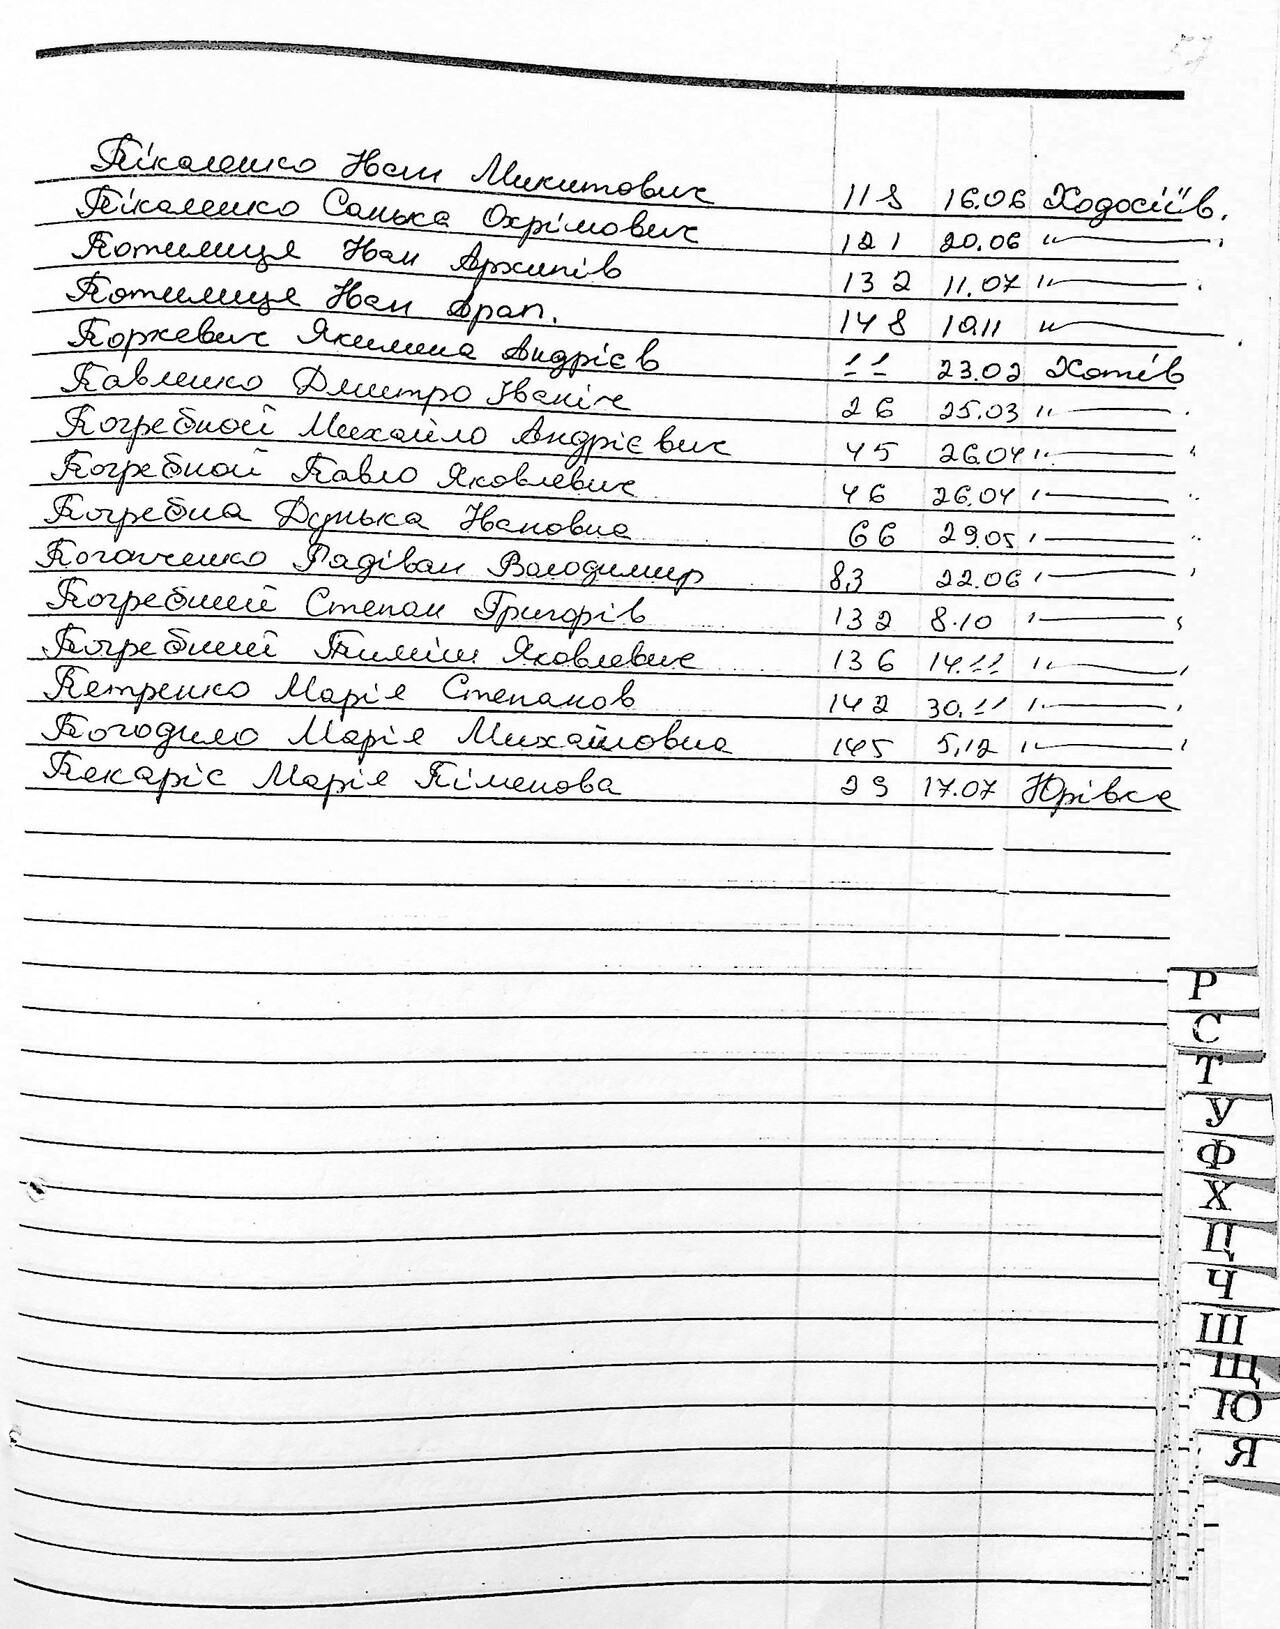 57
Пікаленко Іван Микитович 118 16.06 Ходосіїв.
Пікаленко Санька Охрімович 121 20.06 "
Потилиця Іван Архипів 132 11.07 "
Потилиця Іван Арап. 148 10.11 "
Поржевич Якилина Андрієв 11 23.02 Хотів
Павленко Дмитро Іваніч 26 25.03 "
Погребной Михайло Андрієвич 45 26.04 "
Погребной Павло Яковлевич 46 26.04 "
Погребна Дунька Івановна 66 29.05 "
Радіван Володимир 83 22.06 "
Погребний Степан Григорів 132 8.10 "
Погребний Пиміш Яковлевич 136 14.11 "
Петренко Марія Степанов 142 30.11 "
Погодило Марія Михайловна 145 5.12 "
Пекаріс Марія Піменова 29 17.07 Юрівка
Р
С
Т
У
Ф
Х
Ц
Ч
Ш
Щ
Ю
Я